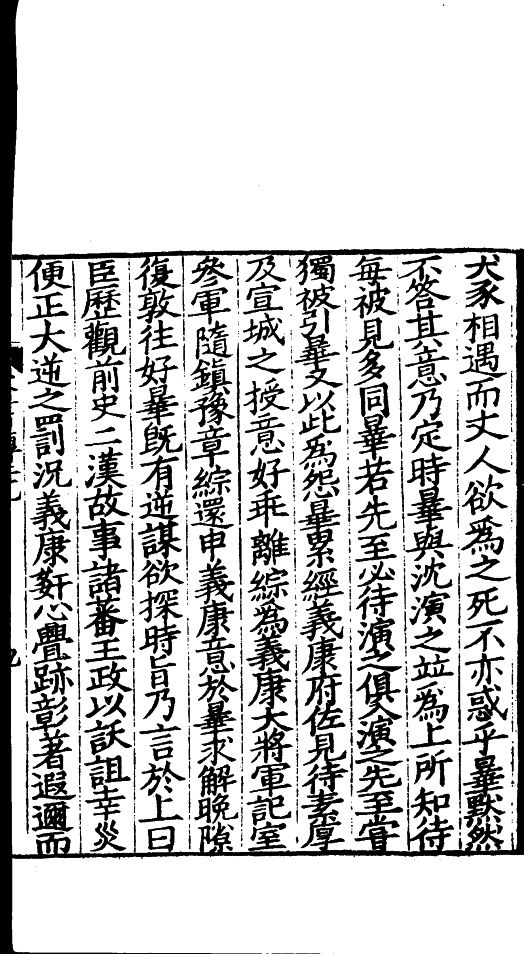 犬豕相遇而丈人欲為之死不亦惑乎曅黙然
不答其意乃定時曅與沈演之並為上所知待
每被見多同曅若先至必待演之俱入演之先至嘗
獨被引曅又以此為怨曅累經義康府佐見待素厚
及宣城之授意好乖離綜為義康大將軍記室
參軍隨鎮豫章綜還申義康意於曅求解晚隙
復敦往好曅既有逆謀欲探時旨乃言於上曰
臣歷觀前史二漢故事諸蕃王政以訞詛幸災
便正大逆之罰況義康姧心疊跡彰著遐邇而
九